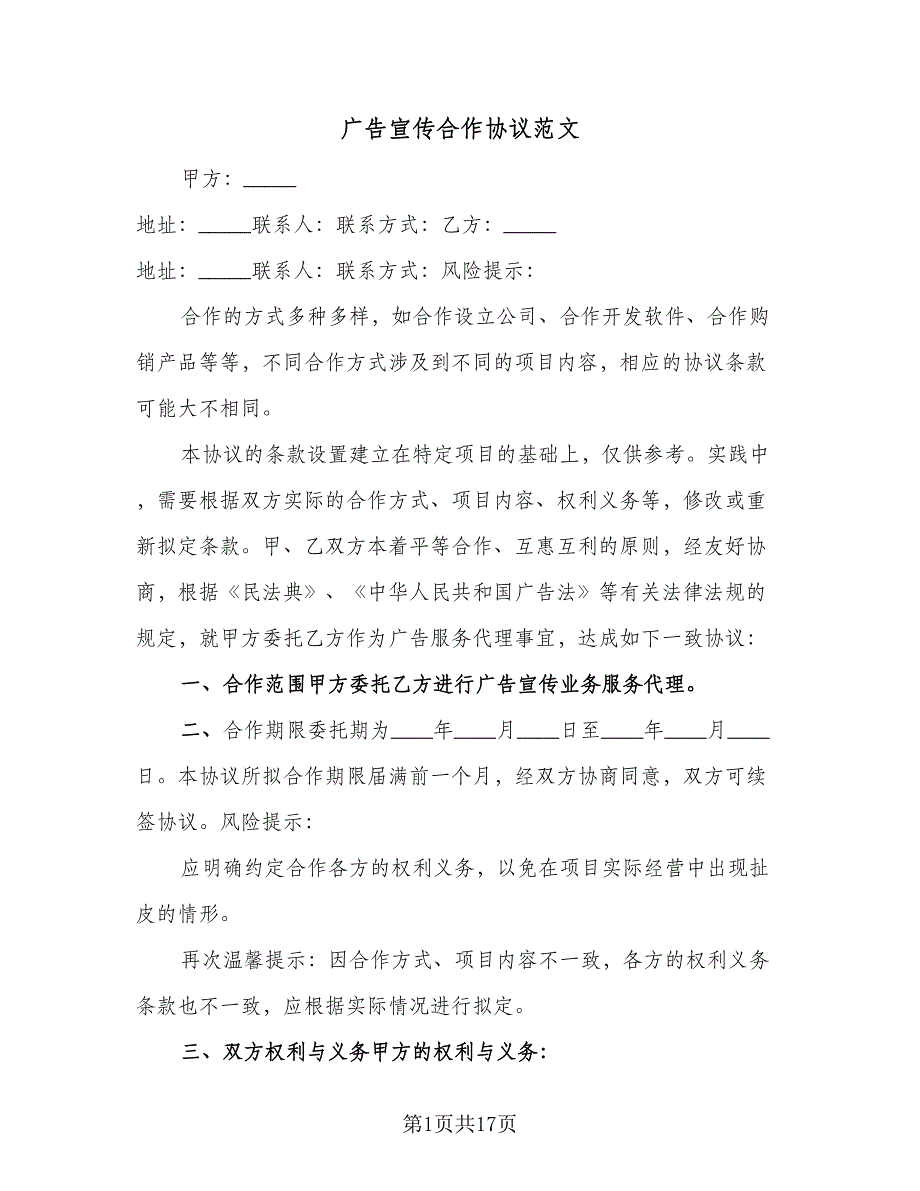 广告宣传合作协议范文
甲方：_____
地址：_____联系人：联系方式：乙方：_____
地址：_____联系人：联系方式：风险提示：
合作的方式多种多样，如合作设立公司、合作开发软件、合作购
销产品等等，不同合作方式涉及到不同的项目内容，相应的协议条款
可能大不相同。
本协议的条款设置建立在特定项目的基础上，仅供参考。实践中
，需要根据双方实际的合作方式、项目内容、权利义务等，修改或重
新拟定条款。甲、乙双方本着平等合作、互惠互利的原则，经友好协
商，根据《民法典》、《中华人民共和国广告法》等有关法律法规的
规定，就甲方委托乙方作为广告服务代理事宜，达成如下一致协议：
一、合作范围甲方委托乙方进行广告宣传业务服务代理。
二、合作期限委托期为____年____月____日至____年____月____
日。本协议所拟合作期限届满前一个月，经双方协商同意，双方可续
签协议。风险提示：
应明确约定合作各方的权利义务，以免在项目实际经营中出现扯
皮的情形。
再次温馨提示：因合作方式、项目内容不一致，各方的权利义务
条款也不一致，应根据实际情况进行拟定。
三、双方权利与义务甲方的权利与义务：
第1页共17页